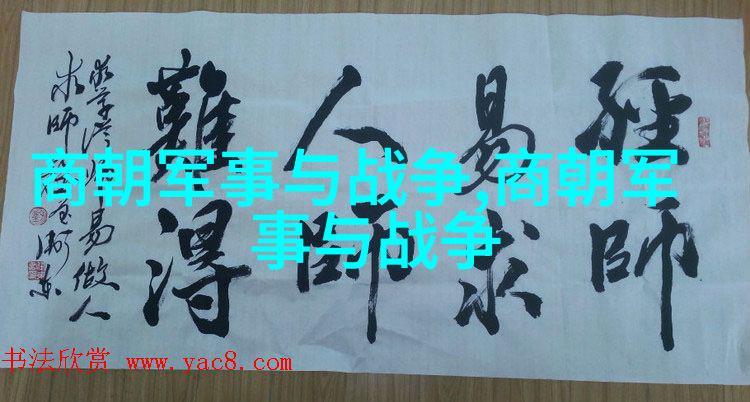 經師
易求
人師
難得
易做人
求師
商朝军事与战争,商朝军
事与战争
书法欣赏 www.yac8.com